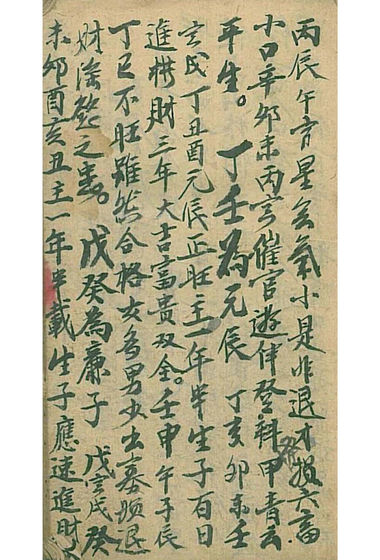 丙辰午寅星玄氣小是非退才損六畜
小口辛卯未丙亥催官遊伴登科甲青云
平生。丁壬為元辰丁亥卯未壬
寅戌丁丑酉元辰正旺主一年半生子百日
進横財三年大吉富贵双全。壬申午子辰
丁巳不旺雖然合格女多男少出寡
财涂之害。戊癸為廉子戊寅戌癸
未卯酉亥丑主一年半載生子應速進财